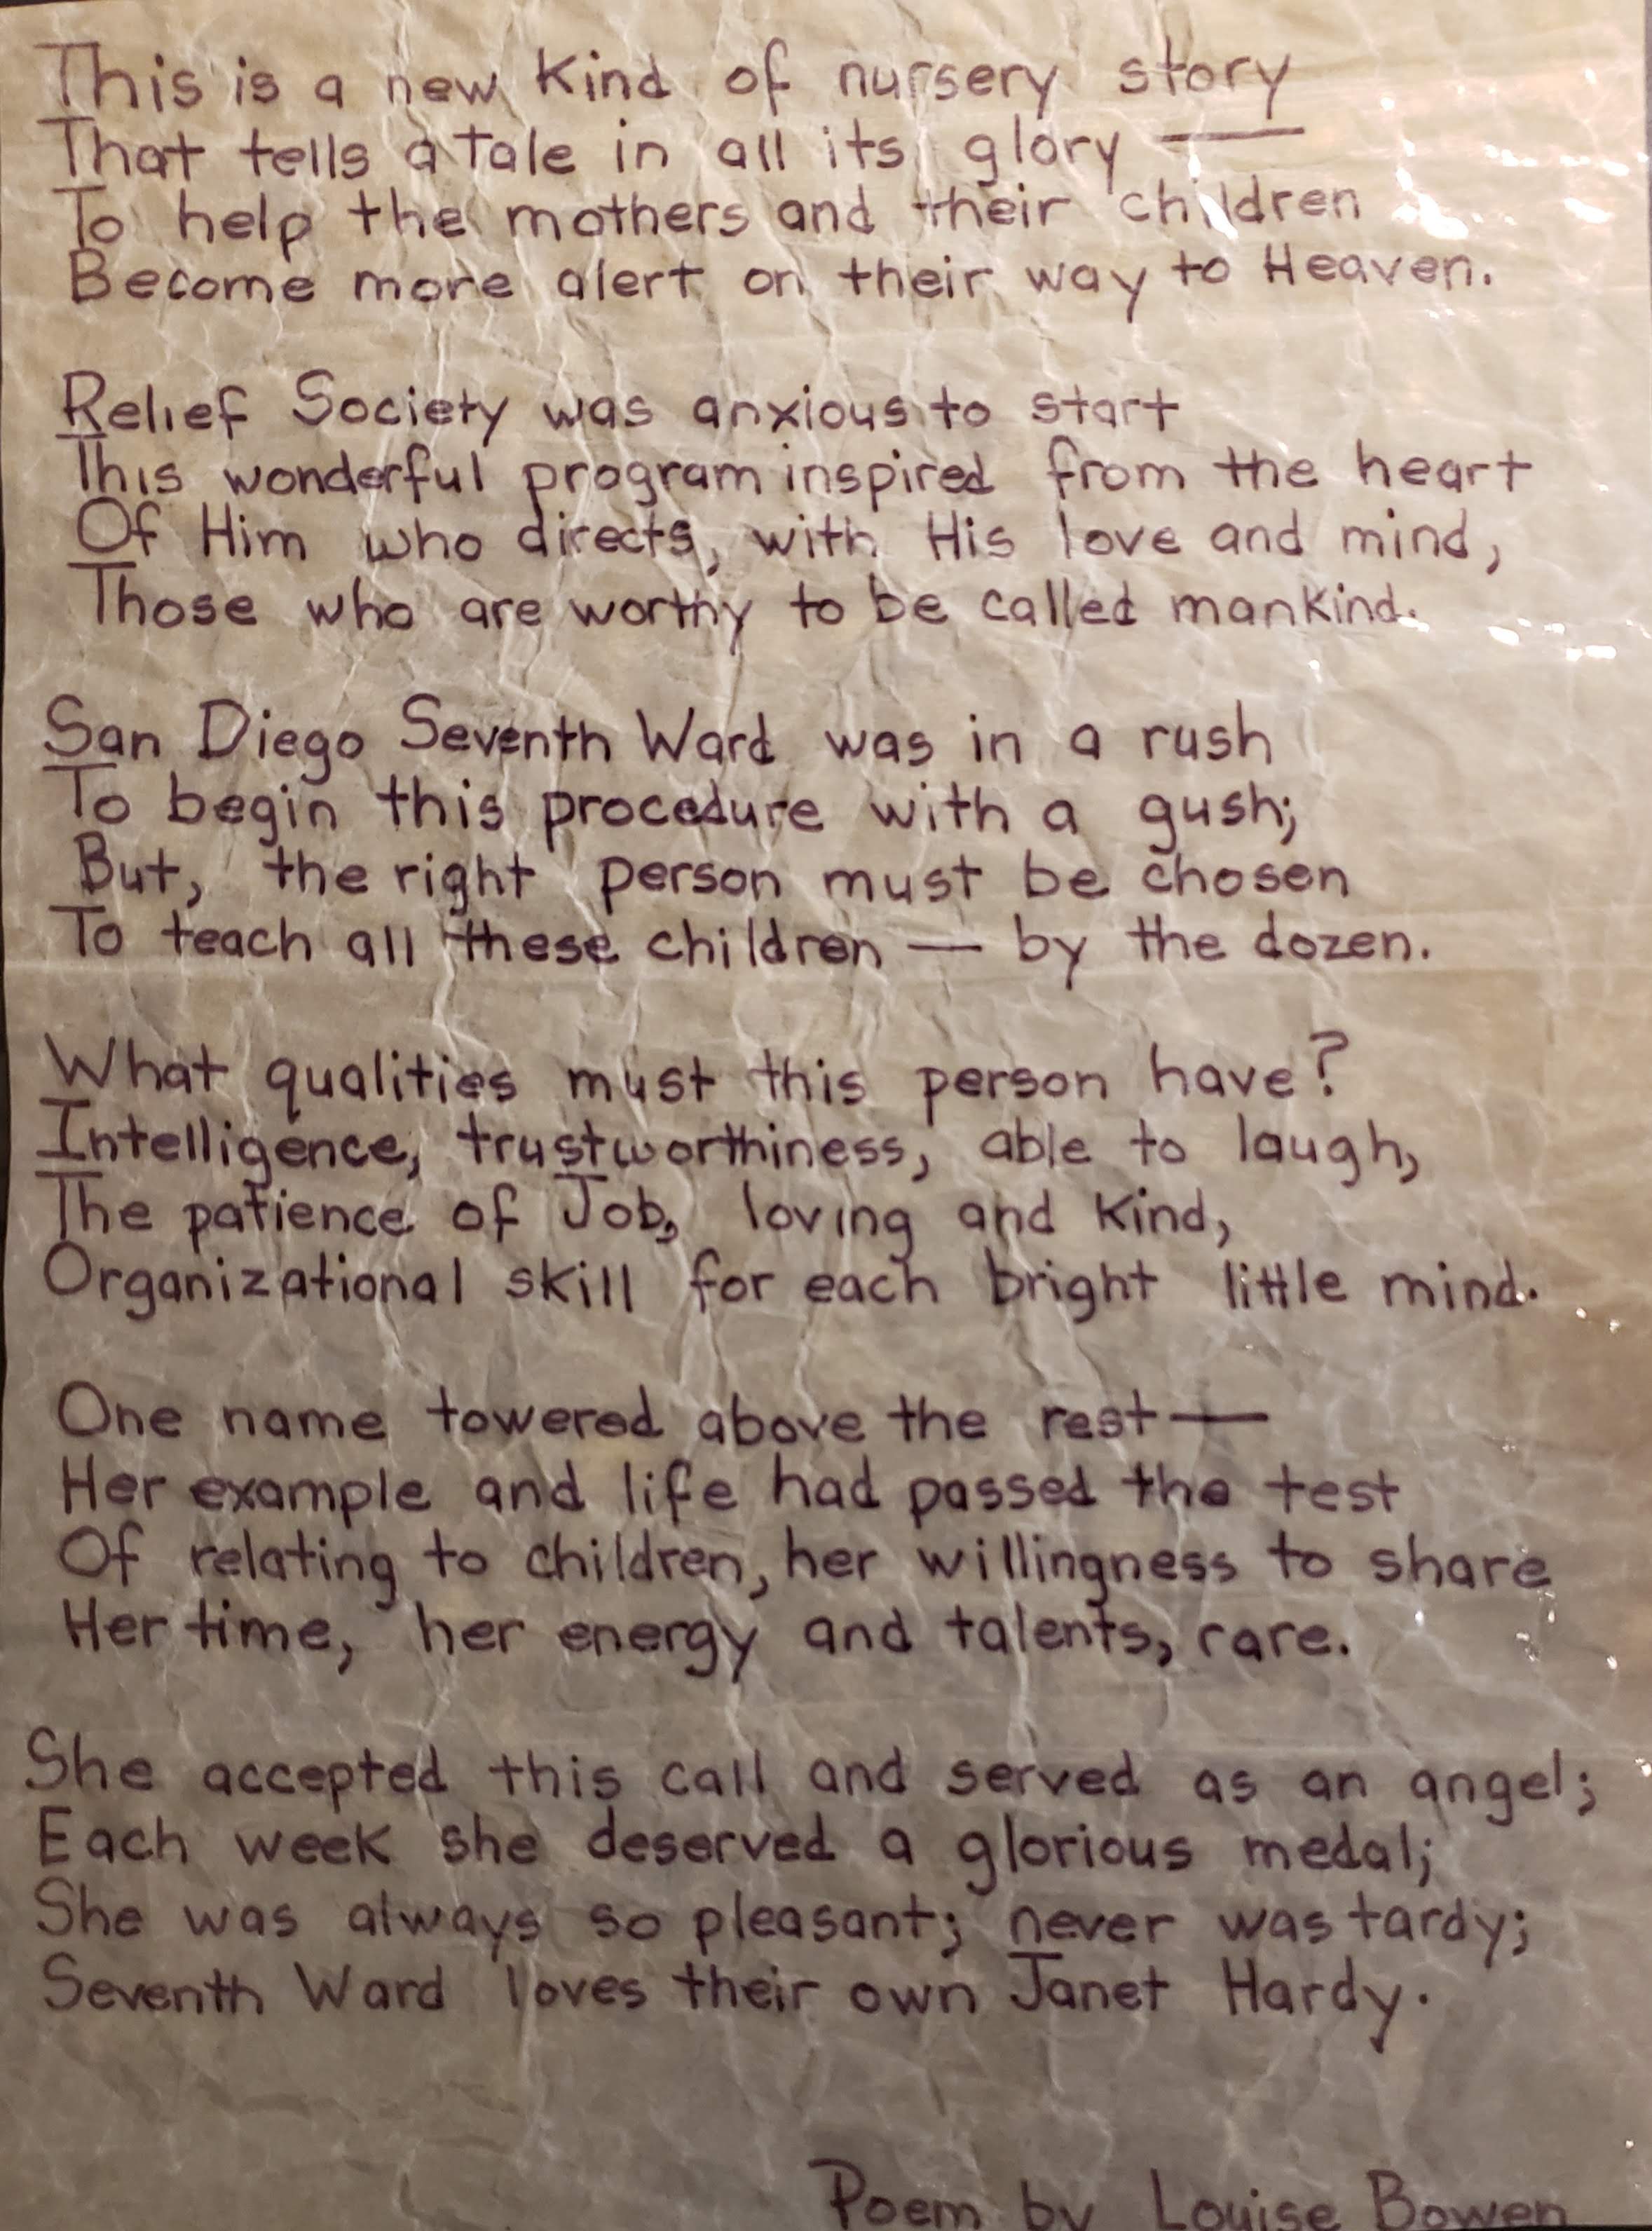 This is a new kind of nursery story
That tells a tale in all its glory —
To help the mothers and their children
Become more alert on their way to Heaven.
Relief Society was anxious to start
This wonderful program inspired from the heart
Of Him who directs, with His love and mind,
Those who are worthy to be called mankind.
San Diego Seventh Ward was in a rush
To begin this procedure with a gush;
But, the right person must be chosen
To teach all these children — by the dozen.
What qualities must this person have?
Intelligence, trustworthiness, able to laugh,
The patience of Job, loving and kind,
Organizational skill for each bright little mind.
One name towered above the rest —
Her example and life had passed the test
Of relating to children, her willingness to share
Her time, her energy and talents, rare.
She accepted this call and served as an angel;
Each week she deserved a glorious medal;
She was always so pleasant; never was tardy;
Seventh Ward loves their own Janet Hardy.
Poem by Louise Bowen